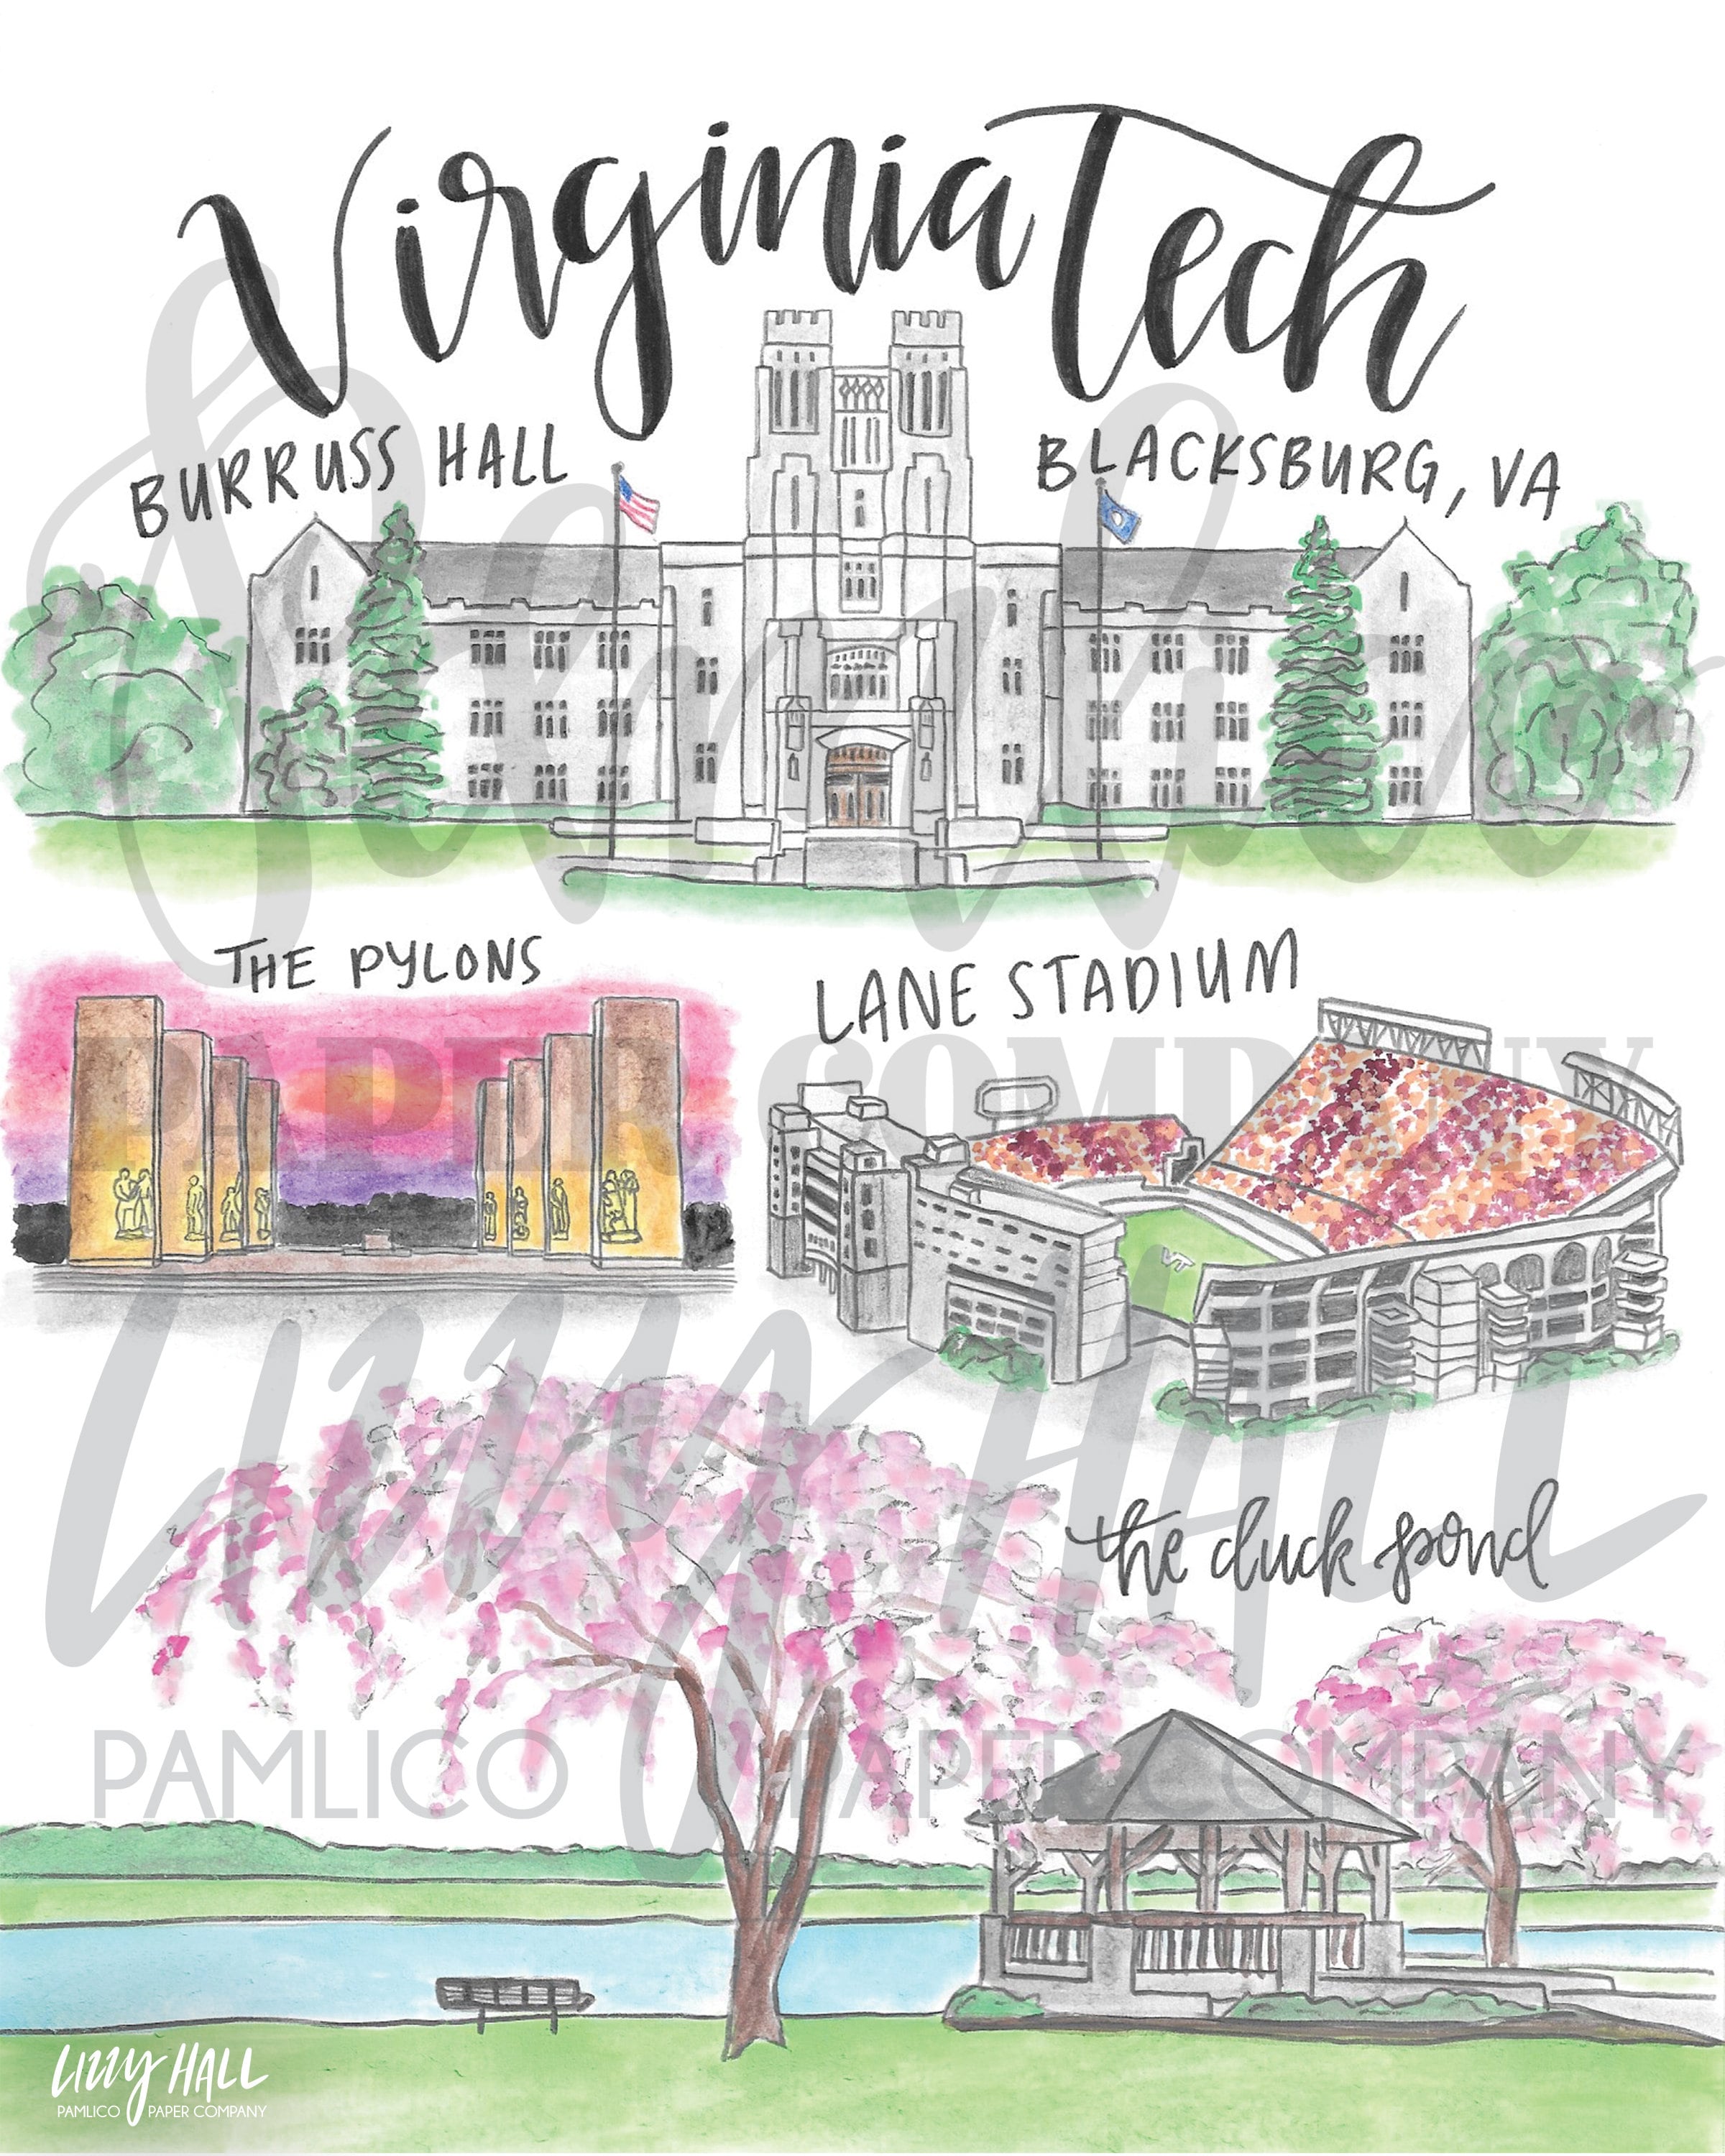 Virginia Tech
BURRUSS HALL
BLACKSBURG, VA
THE PYLONS
LANE STADIUM
VT
the duck pond
Pamlico
PAPER COMPANY
Lizzy HALL
PAMLICO PAPER COMPANY
Lizzy HALL
PAMLICO PAPER COMPANY